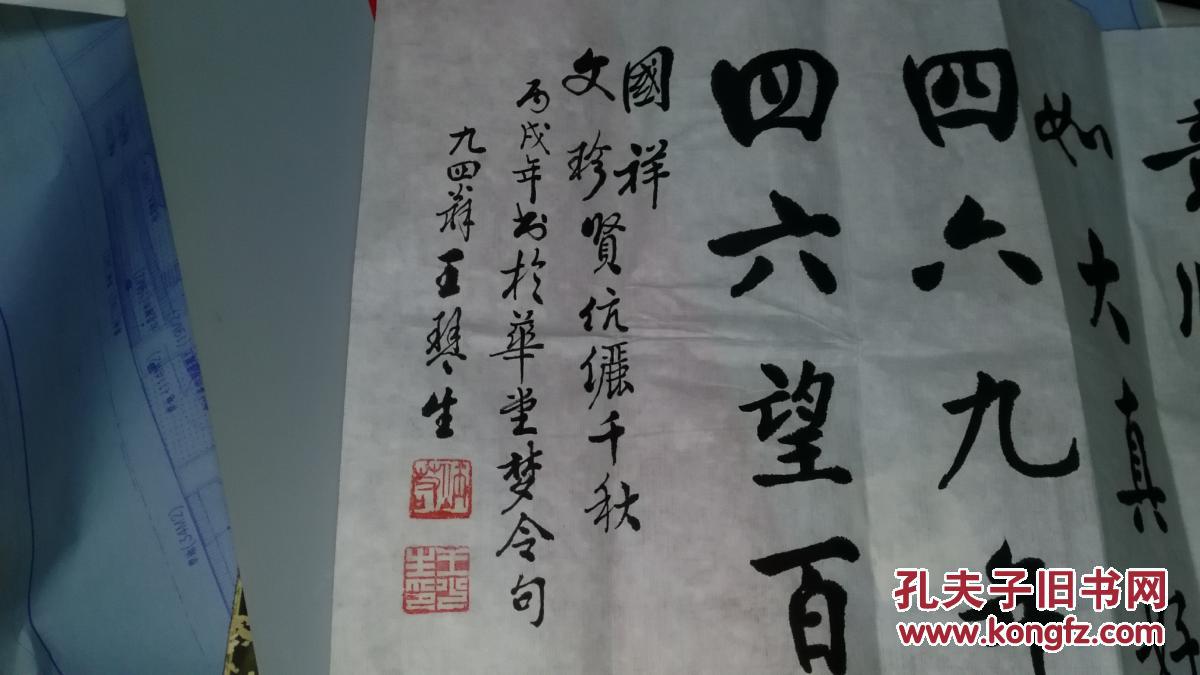 如大真好
四六九年
四六望百
國祥
文珍賢伉儷千秋
丙戌年书於華堂梦令句
九四叟王琴生
孔夫子旧书网
www.kongfz.com